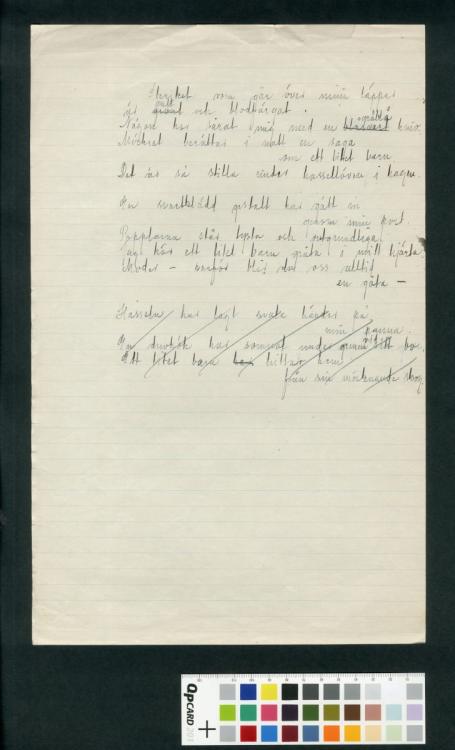 Skriket som går över mina läppar
är gult och blodbärgat.
Någon har sårat mig med en blåsvart gråblå kniv.
Mörkret berättar i natt en saga
om ett litet barn.
Det är så stilla under hasselløven i hagen.
En svartklädd gestalt har gått in
genom min port.
Popplarna står tysta och orörliga.
Jag hör ett litet barn gråta i mitt hjärta.
Moder – varför blir du oss alltid
en gåta –
Hasseln har lagt svala händer på
min panna.
En duvhök har somnat under sitt bo.
Ett litet barn har hittat hem
från sin mörknande skog.
QPCARD 201